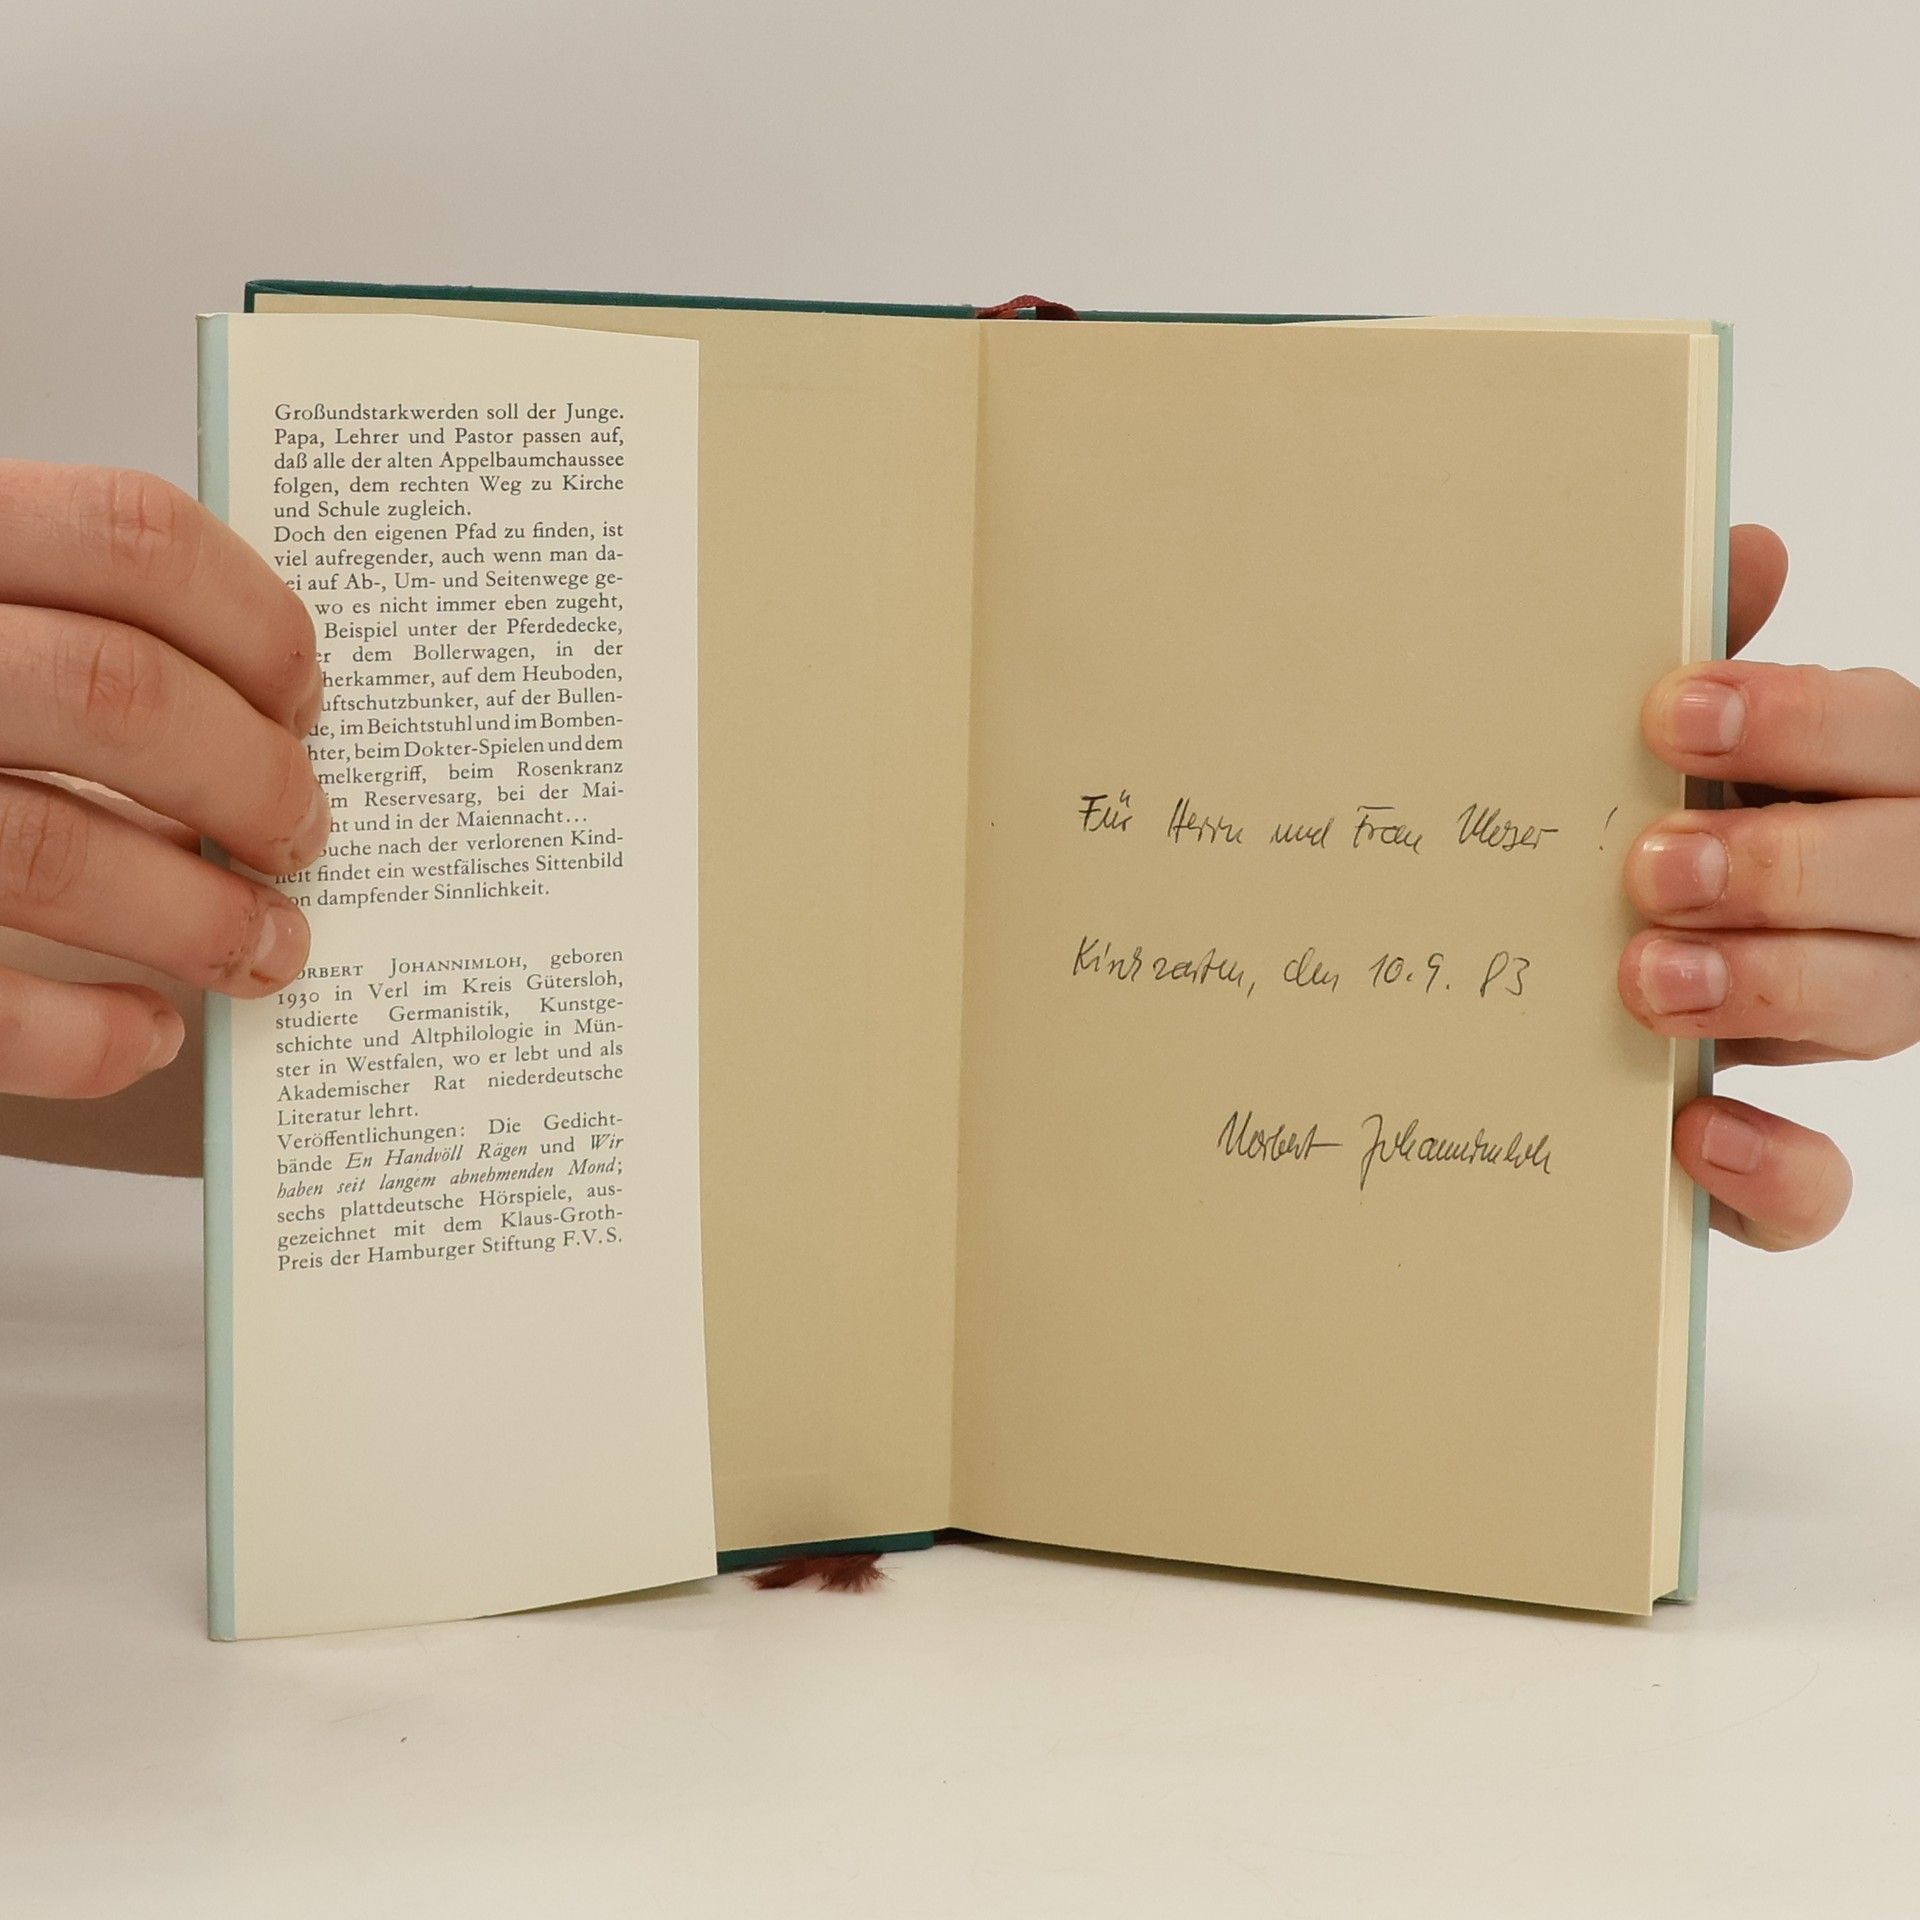 Großundstarkwerden soll der Junge.
Papa, Lehrer und Pastor passen auf,
daß alle der alten Appelbaumchaussee
folgen, dem rechten Weg zu Kirche
und Schule zugleich.
Doch den eigenen Pfad zu finden, ist
viel aufregender, auch wenn man da-
ei auf Ab-, Um- und Seitenwege ge-
wo es nicht immer eben zugeht,
Beispiel unter der Pferdedecke,
er dem Bollerwagen, in der
herkammer, auf dem Heuboden,
uftschutzbunker, auf der Bullen-
de, im Beichtstuhl und im Bomben-
hter, beim Dokter-Spielen und dem
melkergriff, beim Rosenkranz
im Reservesarg, bei der Mai-
ht und in der Maiennacht...
Suche nach der verlorenen Kind-
heit findet ein westfälisches Sittenbild
on dampfender Sinnlichkeit.
ORBERT JOHANNIMLOH, geboren
1930 in Verl im Kreis Gütersloh,
studierte Germanistik, Kunstge-
schichte und Altphilologie in Mün-
ster in Westfalen, wo er lebt und als
Akademischer Rat niederdeutsche
Literatur lehrt.
Veröffentlichungen: Die Gedicht-
bände En Handvöll Rägen und Wir
haben seit langem abnehmenden Mond;
sechs plattdeutsche Hörspiele, aus-
gezeichnet mit dem Klaus-Groth-
Preis der Hamburger Stiftung F.V.S.
Für Herrn und Frau !
den 10.9.83
Norbert Johannimloh